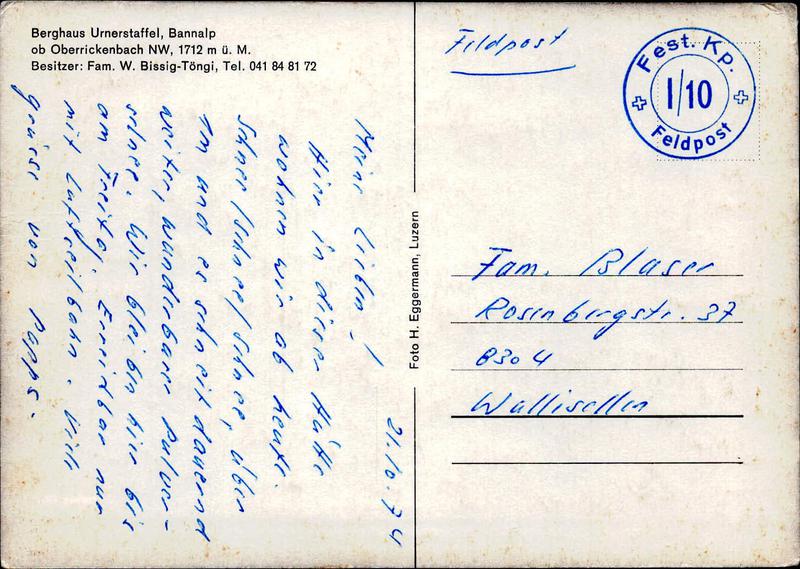 Berghaus Urnerstaffel, Bannalp
ob Oberrickenbach NW, 1712 m ü. M.
Besitzer: Fam. W. Bissig-Töngi, Tel. 041 84 81 72
21.10.74
Meine Lieben!
Hier in dieser Hütte
wohnen wir ab heute.
Schnee/Schnee/Schnee, über
1m und es schneit dauernd
weiter, wunderbarer Pulver-
schnee. Wir bleiben hier bis
am Freitag. Erreichbar nur
mit Luftseilbahn. Viele
Grüsse von Pappi.
Foto H. Eggermann, Luzern
Feldpost
Fest. Kp.
I/10
Feldpost
Fam. Blaser
Rosenbergstr. 37
8304
Wallisellen